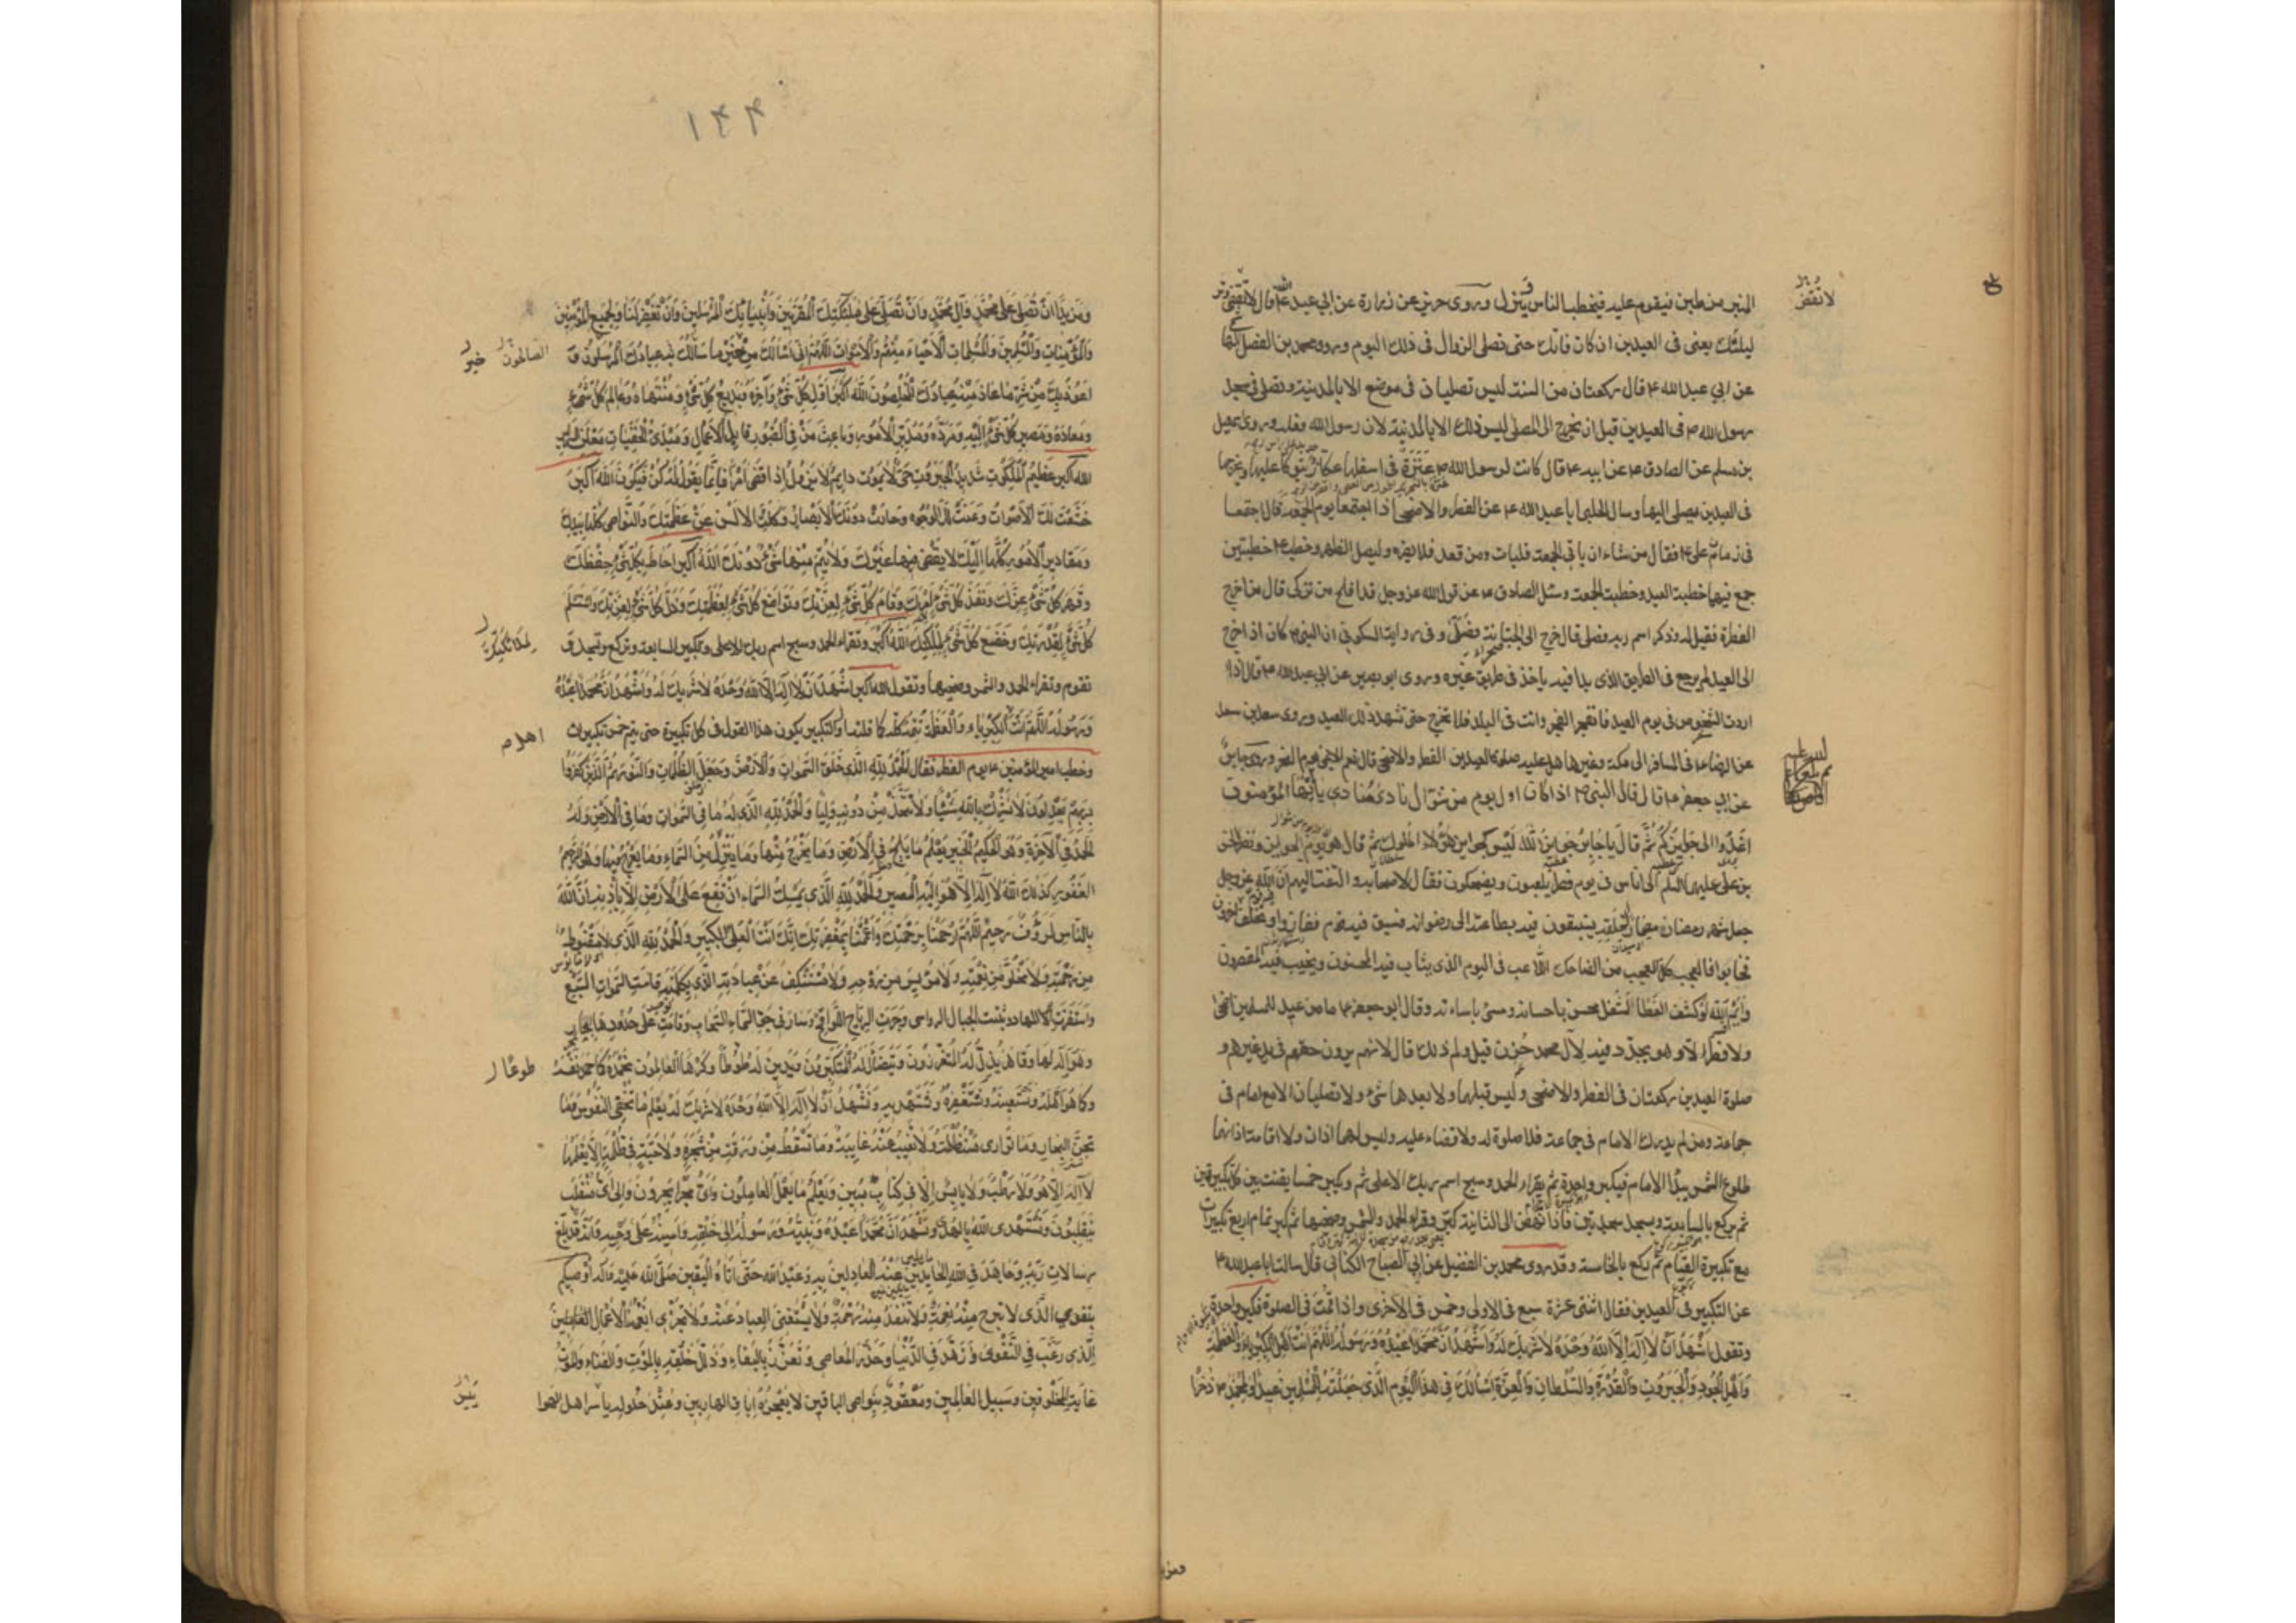 المنبر من طين فيقوم عليه فيخطب الناس ثم ينزل وروى حريز عن زرارة عن ابي عبد الله ع قال لا تقض وتر
ليلتك يعني في العيدين ان كان فاتك حتى تصلي الزوال في ذلك اليوم وروى محمد بن الفضل الهاشمي
عن ابي عبد الله ع قال ركعتان من السنة ليس تصليان في موضع الا بالمدينة وتصلى في مسجد
رسول الله ص في العيدين قبل ان يخرج الى المصلى ليس ذلك الا بالمدينة لان رسول الله فعله وروى اسمعيل
بن مسلم عن الصادق ع عن ابيه ع قال كانت لرسول الله ص عنزة في اسفلها عكاز يتوكأ عليها ويخرجها
في العيدين يصلى اليها وسال الحلبي ابا عبد الله ع عن الفطر والاضحى اذا اجتمعا يوم الجمعة قال اجتمعا
في زمان علي ع فقال من شاء ان ياتي الجمعة فليات ومن قعد فلا يضره وليصل الظهر وخطب ع خطبتين
جمع فيهما خطبة العيد وخطبة الجمعة وسئل الصادق ع عن قول الله عز وجل قد افلح من تزكى قال من اخرج
الفطرة فقيل له وذكر اسم ربه فصلى قال خرج الى الجبانة فصلى وفي رواية السكوني ان النبي ص كان اذا خرج
الى العيد لم يرجع في الطريق الذي بدا فيه ياخذ في طريق غيره وروى ابو بصير عن ابي عبد الله ع قال اذا
اردت الشخوص في يوم العيد فانفجر الفجر وانت في البلد فلا تخرج حتى تشهد ذلك العيد وروى سعد بن سعد
عن الرضا ع في المسافر الى مكة وغيرها هل عليه صلوة العيدين الفطر والاضحى قال نعم الا بمنى يوم النحر وروى جابر
عن ابي جعفر ع قال قال النبي ص اذا كان اول يوم من شوال نادى مناد يا ايها المؤمنون
اغدوا الى جوائزكم ثم قال يا جابر جوائز الله ليس كجوائز هؤلاء الملوك ثم قال هو يوم الجوايز ونظر الحسن
بن علي عليهما السلم الى اناس في يوم فطر يلعبون ويضحكون فقال لاصحابه والتفت اليهم ان الله عز وجل
جعل شهر رمضان مضمارا لخلقه يستبقون فيه بطاعته الى رضوانه فسبق فيه قوم ففازوا وتخلف اخرون
فخابوا فالعجب كل العجب من الضاحك اللاعب في اليوم الذي يثاب فيه المحسنون ويخيب فيه المقصرون
وايم الله لو كشف الغطا لشغل محسن باحسانه ومسئ باساءته وقال ابو جعفر ع ما من عيد للمسلمين اضحى
ولا فطر الا وهو يجدد فيه لآل محمد حزن قيل ولم ذلك قال لانهم يرون حقهم في يد غيرهم و
صلوة العيدين ركعتان في الفطر والاضحى وليس قبلهما ولا بعدهما شئ ولا تصليان الا مع امام في
جماعة ومن لم يدرك الامام في جماعة فلا صلوة له ولا قضاء عليه وليس لهما اذان ولا اقامة اذانهما
طلوع الشمس يبدأ الامام فيكبر واحدة ثم يقراء الحمد وسبح اسم ربك الاعلى ثم ويكبر خمسا يقنت بين كل تكبيرتين
ثم يركع بالسابعة ويسجد سجدتين فاذا نهض الى الثانية كبر وقراء الحمد والشمس وضحيها ثم كبر تمام اربع تكبيرات
مع تكبيرة القيام ثم يركع بالخامسة وقد روى محمد بن الفضيل عن ابي الصباح الكناني قال سالت ابا عبد الله ع
عن التكبير في العيدين فقال اثنتى عشرة سبع في الاولى وخمس في الاخرى واذا قمت في الصلوة فكبر واحدة
وتقول اشهد ان لا اله الا الله وحده لا شريك له واشهد ان محمدا عبده ورسوله اللهم انت اهل الكبرياء والعظمة
واهل الجود والجبروت والقدرة والسلطان والعزة اسألك في هذا اليوم الذي جعلته للمسلمين عيدا ولمحمد ص ذخرا
لا تقض
ومزيدا
١٤٤
ومزيدا ان تصلي على محمد وآل محمد وان تصلي على ملئكتك المقربين وانبيائك المرسلين وان تغفر لنا ولجميع المؤمنين
والمؤمنات والمسلمين والمسلمات الاحياء منهم والاموات اللهم اني اسألك من خير ما سألك به عبادك المرسلون و
اعوذ بك من شر ما عاذ منه عبادك المخلصون الله اكبر اول كل شئ وآخره وبديع كل شئ ومنتهاه وعالم كل شئ
ومعاده ومصير كل شئ اليه ومرده ومدبر الامور وباعث من في القبور قابل الاعمال ومبدئ الخفيات معلن السراير
الله اكبر عظيم الملكوت شديد الجبروت حي لا يموت دايم لا يزول اذا قضى امرا فانما يقول له كن فيكون الله اكبر
خشعت لك الاصوات وعنت لك الوجوه وحارت دونك الابصار وكلت الالسن عن عظمتك والنواصي كلها بيدك
ومقادير الامور كلها اليك لا يقضي فيها غيرك ولا يتم منها شئ دونك الله اكبر احاط بكل شئ حفظك
وقهر كل شئ عزك ونفذ كل شئ امرك وقام كل شئ بك وتواضع كل شئ لعظمتك وذل كل شئ لعزتك واستسلم
كل شئ لقدرتك وخضع كل شئ لملكك الله اكبر وتقراء الحمد وسبح اسم ربك الاعلى وتكبر السابعة وتركع وتسجد و
تقوم وتقراء الحمد والشمس وضحيها وتقول الله اكبر اشهد ان لا اله الا الله وحده لا شريك له واشهد ان محمدا عبده
ورسوله اللهم انت الكبرياء والعظمة تتمه كله كما قلته اول التكبير يكون هذا القول في كل تكبيرة حتى يتم خمس تكبيرات
وخطب امير المؤمنين ع يوم الفطر فقال الحمد لله الذي خلق السموات والارض وجعل الظلمات والنور ثم الذين كفروا
بربهم يعدلون لا نشرك بالله شيئا ولا نتخذ من دونه وليا والحمد لله الذي له ما في السموات وما في الارض وله
الحمد في الآخرة وهو الحكيم الخبير يعلم ما يلج في الارض وما يخرج منها وما ينزل من السماء وما يعرج فيها وهو الرحيم
الغفور كذلك الله لا اله الا هو اليه المصير والحمد لله الذي يمسك السماء ان تقع على الارض الا باذنه ان الله
بالناس لرؤف رحيم اللهم ارحمنا برحمتك واعممنا بمغفرتك انك انت العلي الكبير والحمد لله الذي لا مقنوط
من رحمته ولا مخلو من نعمته ولا مؤيس من روحه ولا مستنكف عن عبادته الذي بكلمته قامت السموات السبع
واستقرت الارض المهاد وثبتت الجبال الرواسي وجرت الرياح اللواقح وسار في جو السماء السحاب وقامت على حدودها البحار
وهو اله لها وقاهر يذل له المتعززون ويتضاءل له المتكبرون ويدين له طوعا وكرها العالمون نحمده كما حمد نفسه
وكما هو اهله ونستعينه ونستغفره ونستهديه ونشهد ان لا اله الا الله وحده لا شريك له يعلم ما تخفى النفوس وما
تجن البحار وما توارى منه ظلمة ولا تغيب عنه غايبة وما تسقط من ورقة من شجرة ولا حبة في ظلمة الا يعلمها
لا اله الا هو ولا رطب ولا يابس الا في كتاب مبين ويعلم ما يعمل العاملون واي مجرى يجرون والى اي منقلب
ينقلبون ونستهدى الله بالهدى ونشهد ان محمدا عبده ونبيه ورسوله الى خلقه وامينه على وحيه وانه قد بلغ
رسالات ربه وجاهد في الله الحايدين عنه العادلين به وعبد الله حتى اتاه اليقين صلى الله عليه وآله اوصيكم
بتقوى الذي لا تبرح منه نعمة ولا تنفد منه رحمة ولا يستغنى العباد عنه ولا تجزى انعمه الاعمال
الذي رغب في التقوى وزهد في الدنيا وحذر المعاصي وتعزز بالبقاء وذلل خلقه بالموت والفناء والموت
غاية المخلوقين وسبيل العالمين ومعقود بنواصي الباقين لا يعجزه اباق الهاربين وعند حلوله ياسر اهل الهوا
الصالحون خير
طوعا